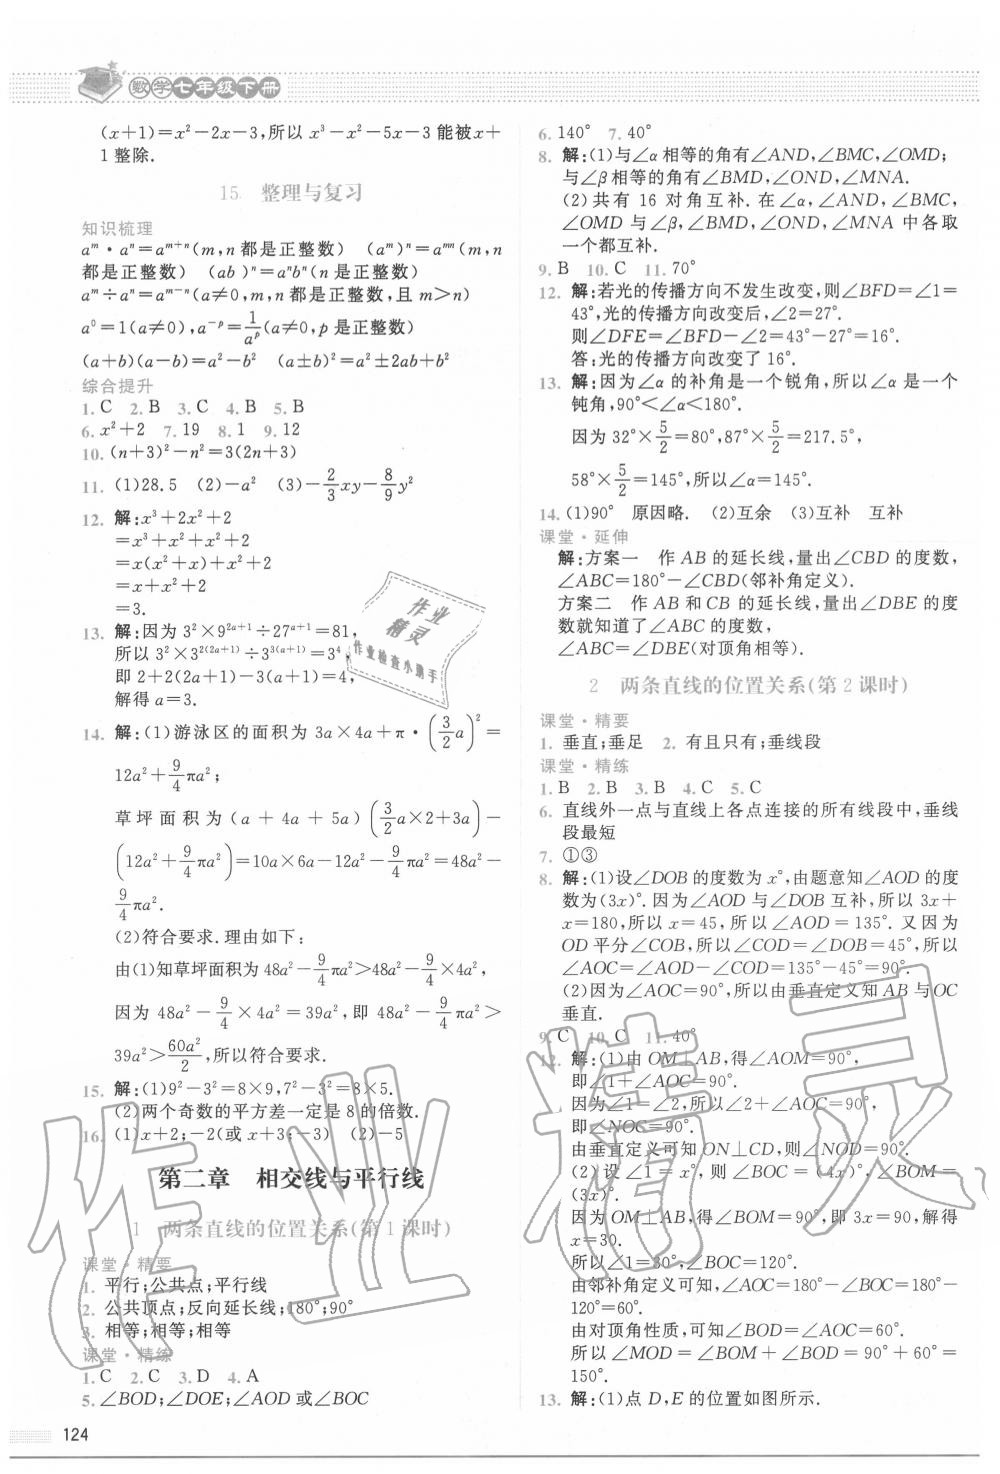 数学七年级下册
(x+1)=x²-2x-3,所以 x³-x²-5x-3 能被x+
1整除.
15 整理与复习
知识梳理
aᵐ·aⁿ=aᵐ⁺ⁿ(m,n都是正整数) (aᵐ)ⁿ=aᵐⁿ(m,n
都是正整数) (ab)ⁿ=aⁿbⁿ(n是正整数)
aᵐ÷aⁿ=aᵐ⁻ⁿ(a≠0,m,n都是正整数,且m>n)
a⁰=1(a≠0),a⁻ᵖ=1/aᵖ(a≠0,p是正整数)
(a+b)(a-b)=a²-b² (a±b)²=a²±2ab+b²
综合提升
1. C 2. B 3. C 4. B 5. B
6. x²+2 7. 19 8. 1 9. 12
10. (n+3)²-n²=3(2n+3)
11. (1)28.5 (2)-a² (3)-2/3xy-8/9y²
12. 解:x³+2x²+2
=x³+x²+x²+2
=x(x²+x)+x²+2
=x+x²+2
=3.
13. 解:因为3²×9²ᵃ⁺¹÷27ᵃ⁺¹=81,
所以3²×3²⁽²ᵃ⁺¹⁾÷3³⁽ᵃ⁺¹⁾=3⁴,
即2+2(2a+1)-3(a+1)=4,
解得a=3.
14. 解:(1)游泳区的面积为3a×4a+π·(3/2a)²=
12a²+9/4πa²;
草坪面积为(a+4a+5a)(3/2a×2+3a)-
(12a²+9/4πa²)=10a×6a-12a²-9/4πa²=48a²-
9/4πa².
(2)符合要求.理由如下:
由(1)知草坪面积为48a²-9/4πa²>48a²-9/4×4a²,
因为48a²-9/4×4a²=39a²,即48a²-9/4πa²>
39a²>60a²/2,所以符合要求.
15. 解:(1)9²-3²=8×9,7²-3²=8×5.
(2)两个奇数的平方差一定是8的倍数.
16. (1)x+2;-2(或x+3;-3) (2)-5
第二章 相交线与平行线
1 两条直线的位置关系(第1课时)
课堂·精要
1. 平行;公共点;平行线
2. 公共顶点;反向延长线;180°;90°
3. 相等;相等;相等
课堂·精练
1. C 2. C 3. D 4. A
5. ∠BOD;∠DOE;∠AOD或∠BOC
124
6. 140° 7. 40°
8. 解:(1)与∠α相等的角有∠AND,∠BMC,∠OMD;
与∠β相等的角有∠BMD,∠OND,∠MNA.
(2)共有16对角互补.在∠α,∠AND,∠BMC,
∠OMD与∠β,∠BMD,∠OND,∠MNA中各取
一个都互补.
9. B 10. C 11. 70°
12. 解:若光的传播方向不发生改变,则∠BFD=∠1=
43°,光的传播方向改变后,∠2=27°.
则∠DFE=∠BFD-∠2=43°-27°=16°.
答:光的传播方向改变了16°.
13. 解:因为∠α的补角是一个锐角,所以∠α是一个
钝角,90°<∠α<180°.
因为32°×5/2=80°,87°×5/2=217.5°,
58°×5/2=145°,所以∠α=145°.
14. (1)90° 原因略. (2)互余 (3)互补 互补
课堂·延伸
解:方案一 作AB的延长线,量出∠CBD的度数,
∠ABC=180°-∠CBD(邻补角定义).
方案二 作AB和CB的延长线,量出∠DBE的度
数就知道了∠ABC的度数,
∠ABC=∠DBE(对顶角相等).
2 两条直线的位置关系(第2课时)
课堂·精要
1. 垂直;垂足 2. 有且只有;垂线段
课堂·精练
1. B 2. B 3. B 4. C 5. C
6. 直线外一点与直线上各点连接的所有线段中,垂线
段最短
7. ①③
8. 解:(1)设∠DOB的度数为x°,由题意知∠AOD的度
数为(3x)°.因为∠AOD与∠DOB互补,所以3x+
x=180,所以x=45,所以∠AOD=135°.又因为
OD平分∠COB,所以∠COD=∠DOB=45°,所以
∠AOC=∠AOD-∠COD=135°-45°=90°.
(2)因为∠AOC=90°,所以由垂直定义知AB与OC
垂直.
9. C 10. C 11. 40°
12. 解:(1)由OM⊥AB,得∠AOM=90°,
即∠1+∠AOC=90°.
因为∠1=∠2,所以∠2+∠AOC=90°,
即∠NOC=90°.
由垂直定义可知ON⊥CD,则∠NOD=90°.
(2)设∠1=x°,则∠BOC=(4x)°,∠BOM=
(3x)°.
因为OM⊥AB,得∠BOM=90°,即3x=90,解得
x=30.
所以∠1=30°,∠BOC=120°.
由邻补角定义可知,∠AOC=180°-∠BOC=180°-
120°=60°.
由对顶角性质,可知∠BOD=∠AOC=60°.
所以∠MOD=∠BOM+∠BOD=90°+60°=
150°.
13. 解:(1)点D,E的位置如图所示.
作业
精灵
作业检查小助手
作业精灵